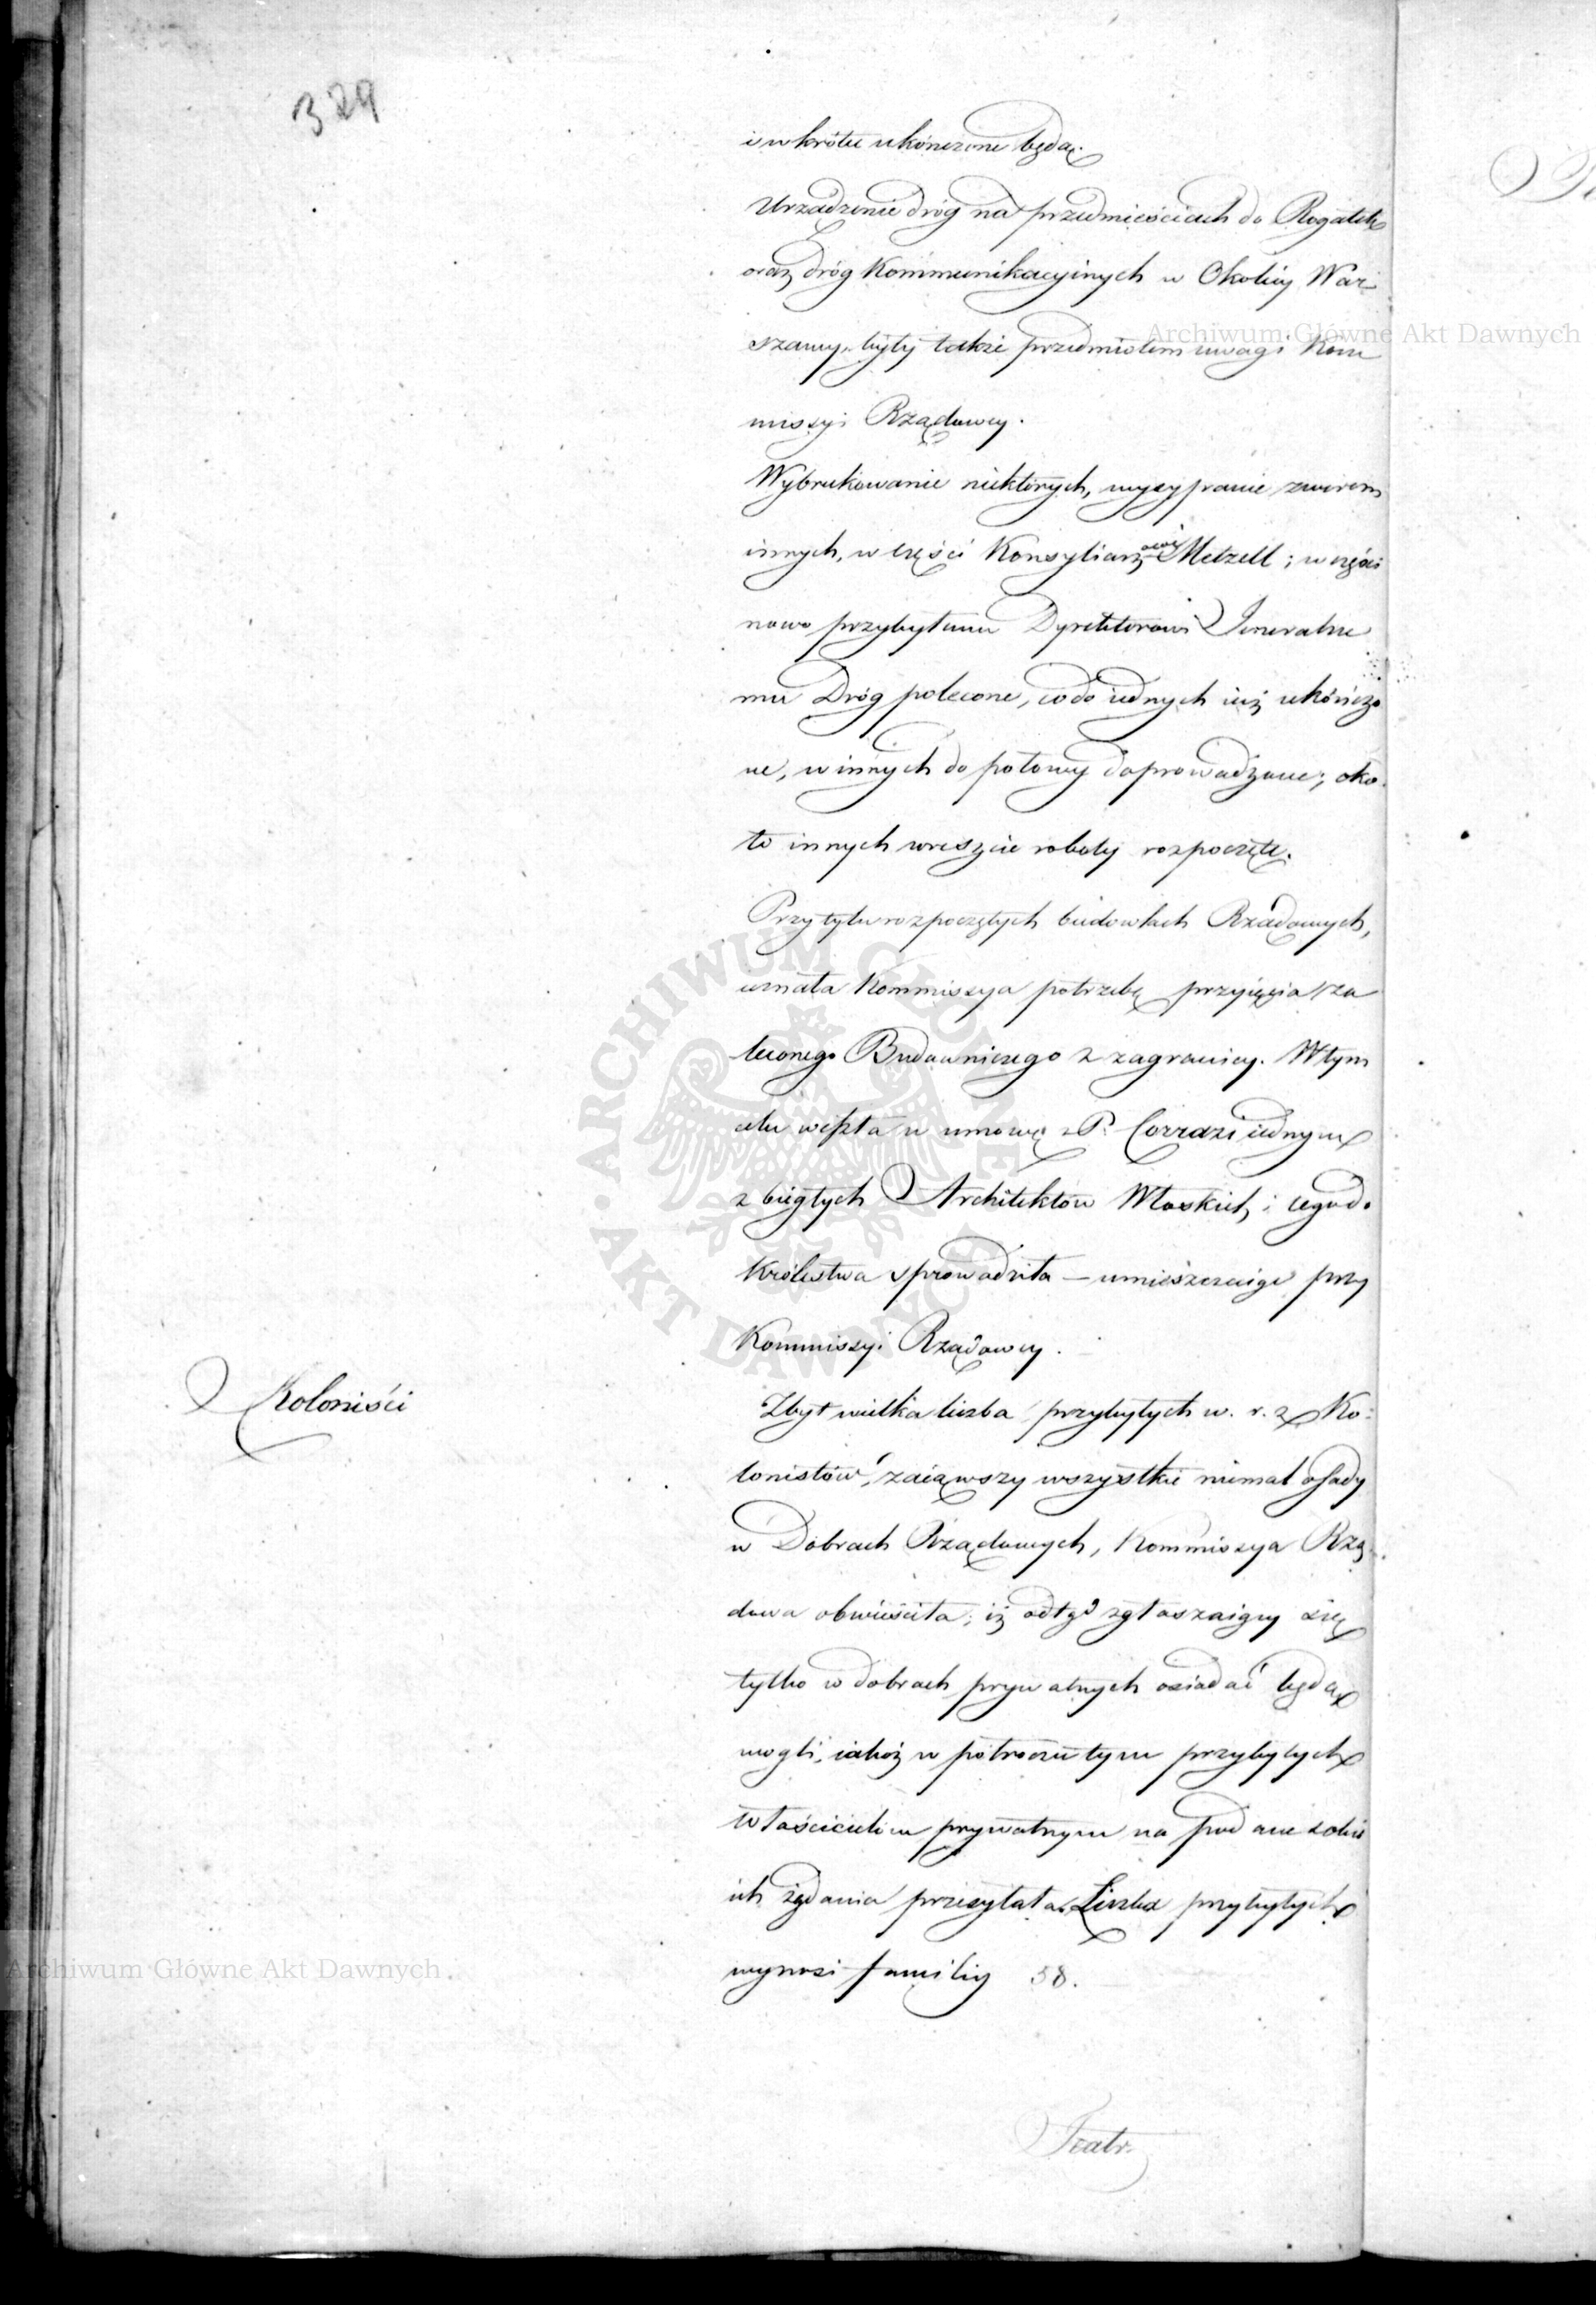 329
i wkrótce ukończone będą.
Urządzenie dróg na przedmieściach do Rogatek
oraz dróg Kommunikacyinych w Okolicy War-
szawy, były także przedmiotem uwagi Kom
missyi Rządowey.
Wybrukowanie niektórych, wysypanie żwirem
innych, w części Konsyliarzowi Metzell; w części
nowo przybyłemu Dyrektorowi Jeneralne
mu Dróg polecone, co do iednych iuż ukończo
ne, w innych do połowy doprowadzone; oko-
ło innych wreszcie roboty rozpoczęte.
Przy tylu rozpoczętych budowlach Rządowych,
uznała Kommissya potrzebę przyięcia za
leconego Budowniczego z zagranicy. W tym
celu weszła w umowę z P. Corrazi iednym
z biegłych Architektów Włoskich i tego do
Królestwa sprowadziła – umieszczaiąc przy
Kommissyi Rządowey.
Koloniści
Zbyt wielka liczba przybyłych w. r. z. Ko-
lonistów, zaiąwszy wszystkie niemal osady
w Dobrach Rządowych, Kommissya Rzą-
dowa obwieściła, iż odtąd zgłaszaiący się
tylko w dobrach prywatnych osiadać będą
mogli, iakoż w półroczu tym przybyłych
właścicielom prywatnym na podane sobie
ich żądania przesyłała. Liczba przybyłych
wynosi familiy 58.
Teatr.
Archiwum Główne Akt Dawnych
Archiwum Główne Akt Dawnych
ARCHIWUM GŁÓWNE AKT DAWNYCH